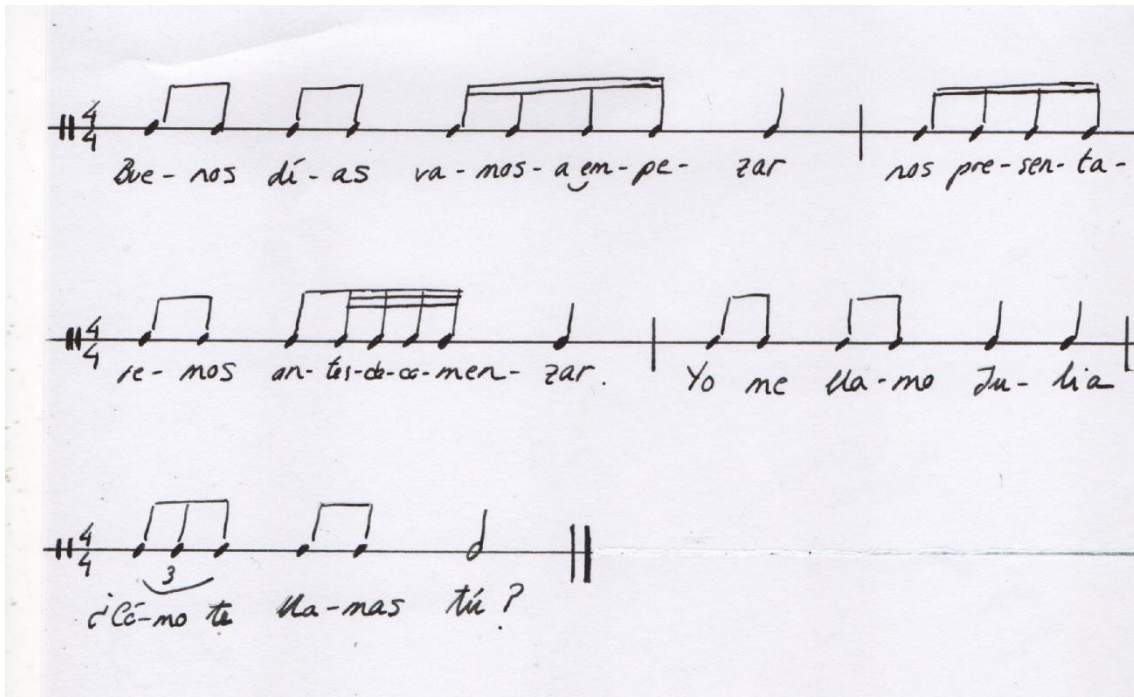 4/4 Bue - nos dí - as va - mos - a em - pe - zar nos pre - sen - ta -
4/4 re - mos an - tes - de - co - men - zar. Yo me lla - mo Ju - lia
4/4 3
¿Có - mo te lla - mas tú?